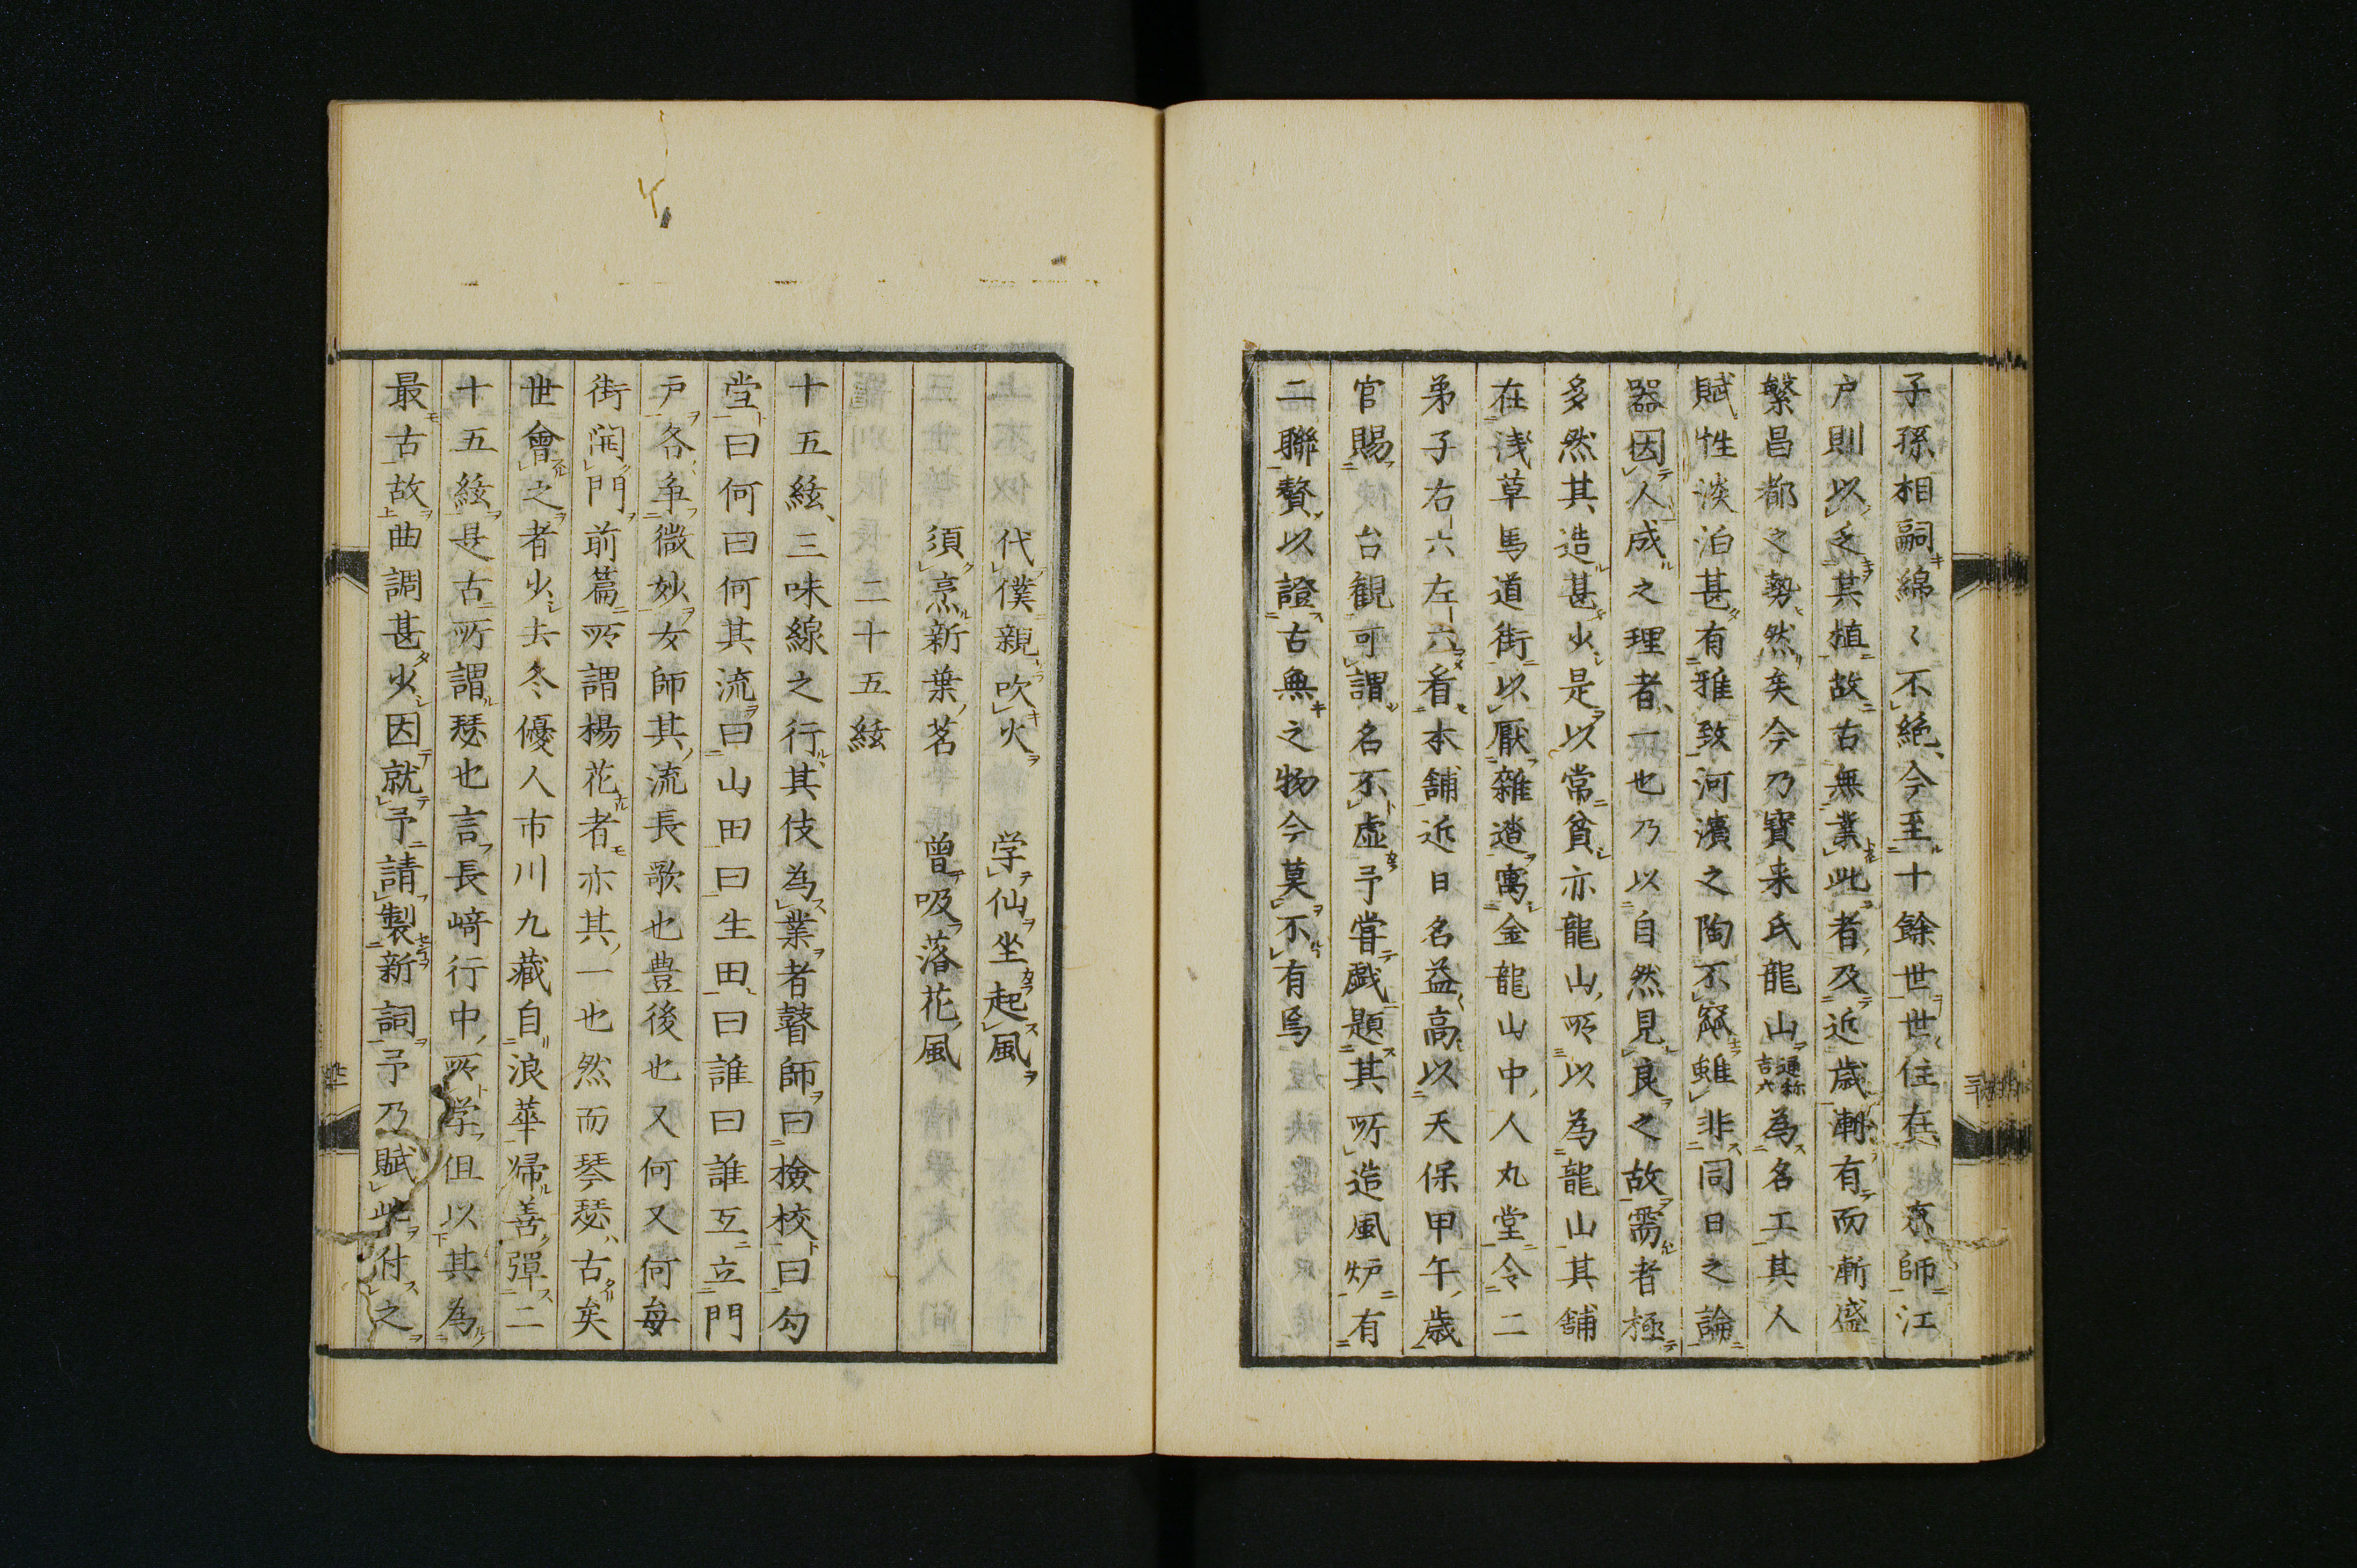 子孫相嗣綿〻不絶今至十餘世世住在京師江
戸則以乏其植故古無業此者及近歳漸有而漸盛
繁昌都之勢然矣今乃寶来氏龍山通称吉六為名工其人
賦性淡泊甚有雅致河濱之陶不窳雖非同日之論
器因人成之理者一也乃以自然見良之故需者極
多然其造甚少是以常貧亦龍山所以為龍山其舗
在浅草馬道街以厭雜遝寓金龍山中人丸堂令二
弟子右六左六看本舗近日名益高以天保甲午歳
官賜 台観可謂名不虚予嘗戯題其所造風炉有
二聯贅以證古無之物今莫不有焉
代僕親吹火 学仙坐起風
須烹新葉茗 曾吸落花風
二十五絃
十五絃三味線之行其伎為業者瞽師曰検校曰勾
堂曰何曰何其流曰山田曰生田曰誰曰誰互立門
戸各争微妙女師其流長歌也豊後也又何又何毎
街開門前篇所謂楊花者亦其一也然而琴瑟古矣
世會之者少去冬優人市川九蔵自浪華帰善彈二
十五絃是古所謂瑟也言長﨑行中所学但以其為
最古故曲調甚少因就予請製新詞予乃賦此付之